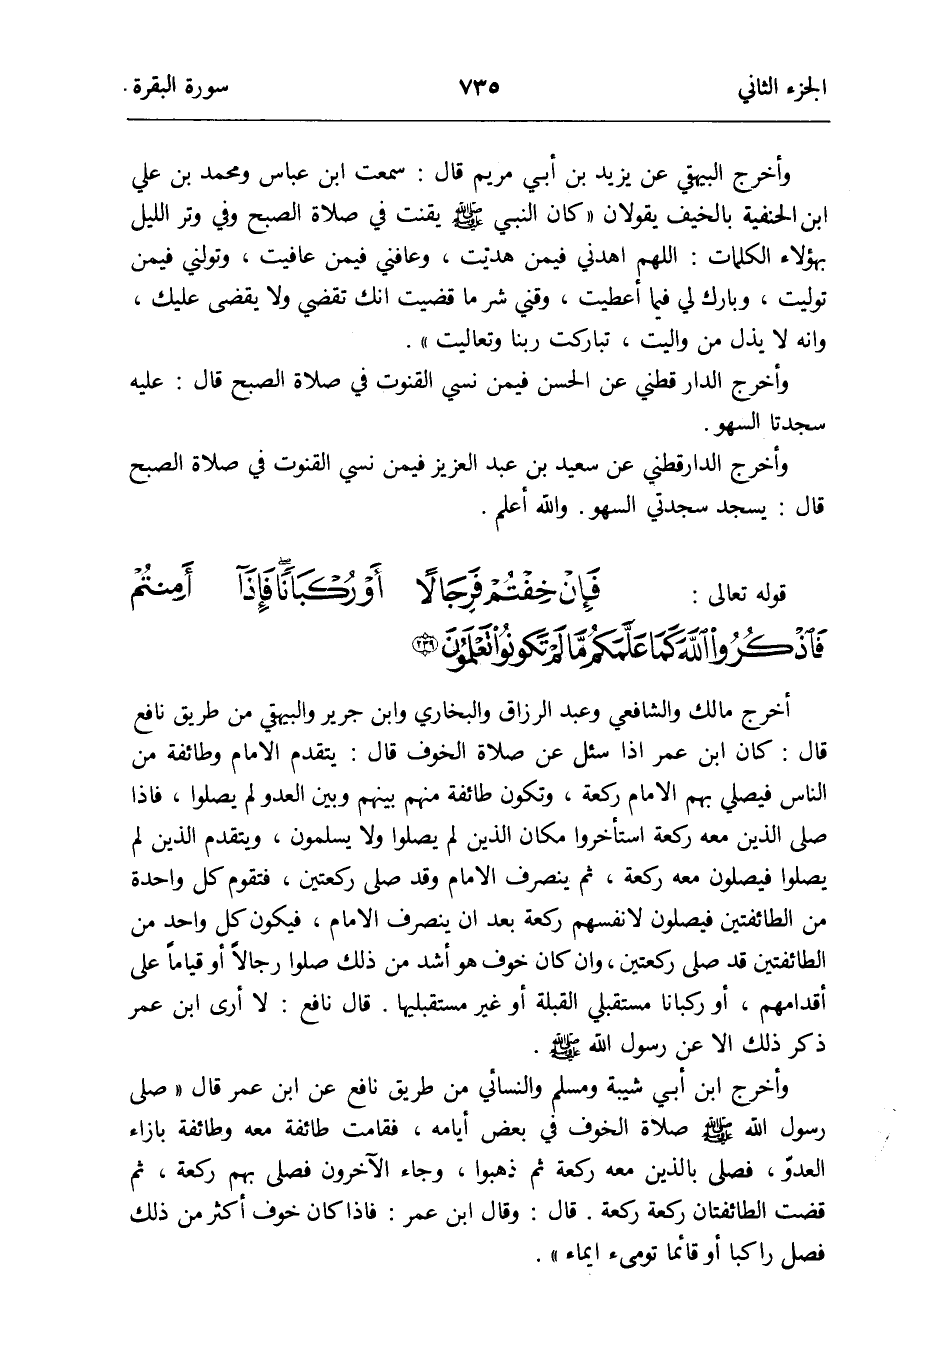 الجزء الثاني ٧٣٥ سورة البقرة .
وأخرج البيهقي عن يزيد بن أبي مريم قال : سمعت ابن عباس ومحمد بن علي
ابن الحنفية بالخيف يقولان « كان النبي ﷺ يقنت في صلاة الصبح وفي وتر الليل
بهؤلاء الكلمات : اللهم اهدني فيمن هديت ، وعافني فيمن عافيت ، وتولني فيمن
توليت ، وبارك لي فيما أعطيت ، وقني شر ما قضيت انك تقضي ولا يقضى عليك ،
وانه لا يذل من واليت ، تباركت ربنا وتعاليت » .
وأخرج الدار قطني عن الحسن فيمن نسي القنوت في صلاة الصبح قال : عليه
سجدتا السهو .
وأخرج الدارقطني عن سعيد بن عبد العزيز فيمن نسي القنوت في صلاة الصبح
قال : يسجد سجدتي السهو . والله أعلم .
قوله تعالى : فَإِنْ خِفْتُمْ فَرِجَالًا أَوْ رُكْبَانًا ۖ فَإِذَآ أَمِنتُمْ
فَٱذْكُرُوا۟ ٱللَّهَ كَمَا عَلَّمَكُم مَّا لَمْ تَكُونُوا۟ تَعْلَمُونَ ٢٣٩
أخرج مالك والشافعي وعبد الرزاق والبخاري وابن جرير والبيهقي من طريق نافع
قال : كان ابن عمر اذا سئل عن صلاة الخوف قال : يتقدم الامام وطائفة من
الناس فيصلي بهم الامام ركعة ، وتكون طائفة منهم بينهم وبين العدو لم يصلوا ، فاذا
صلى الذين معه ركعة استأخروا مكان الذين لم يصلوا ولا يسلمون ، ويتقدم الذين لم
يصلوا فيصلون معه ركعة ، ثم ينصرف الامام وقد صلى ركعتين ، فتقوم كل واحدة
من الطائفتين فيصلون لانفسهم ركعة بعد ان ينصرف الامام ، فيكون كل واحد من
الطائفتين قد صلى ركعتين ، وان كان خوف هو أشد من ذلك صلوا رجالاً أو قياماً على
أقدامهم ، أو ركبانا مستقبلي القبلة أو غير مستقبليها . قال نافع : لا أرى ابن عمر
ذكر ذلك الا عن رسول الله ﷺ .
وأخرج ابن أبي شيبة ومسلم والنسائي من طريق نافع عن ابن عمر قال « صلى
رسول الله ﷺ صلاة الخوف في بعض أيامه ، فقامت طائفة معه وطائفة بازاء
العدوّ ، فصلى بالذين معه ركعة ثم ذهبوا ، وجاء الآخرون فصلى بهم ركعة ، ثم
قضت الطائفتان ركعة ركعة . قال : وقال ابن عمر : فاذا كان خوف أكثر من ذلك
فصل راكبا أو قائما تومىء ايماء » .